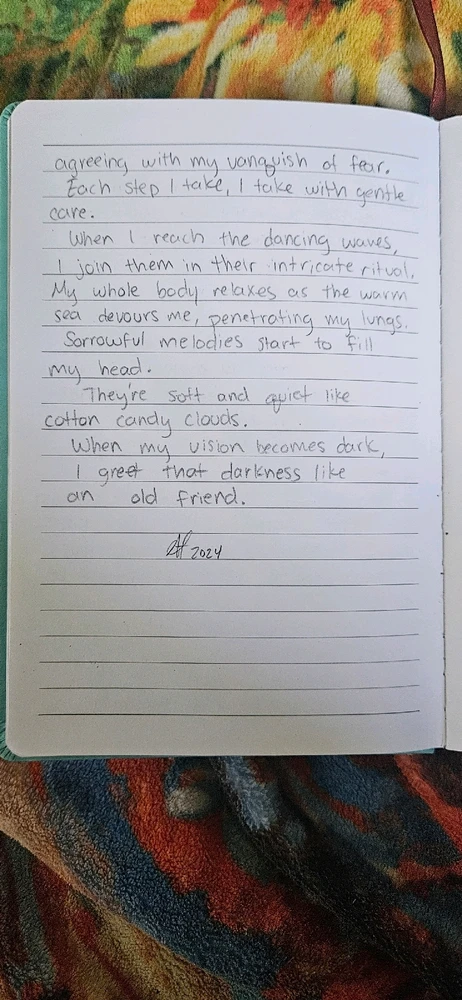 agreeing with my vanquish of fear.
Each step I take, I take with gentle
care.
When I reach the dancing waves,
I join them in their intricate ritual.
My whole body relaxes as the warm
sea devours me, penetrating my lungs.
Sorrowful melodies start to fill
my head.
They're soft and quiet like
cotton candy clouds.
When my vision becomes dark,
I greet that darkness like
an old friend.
2024